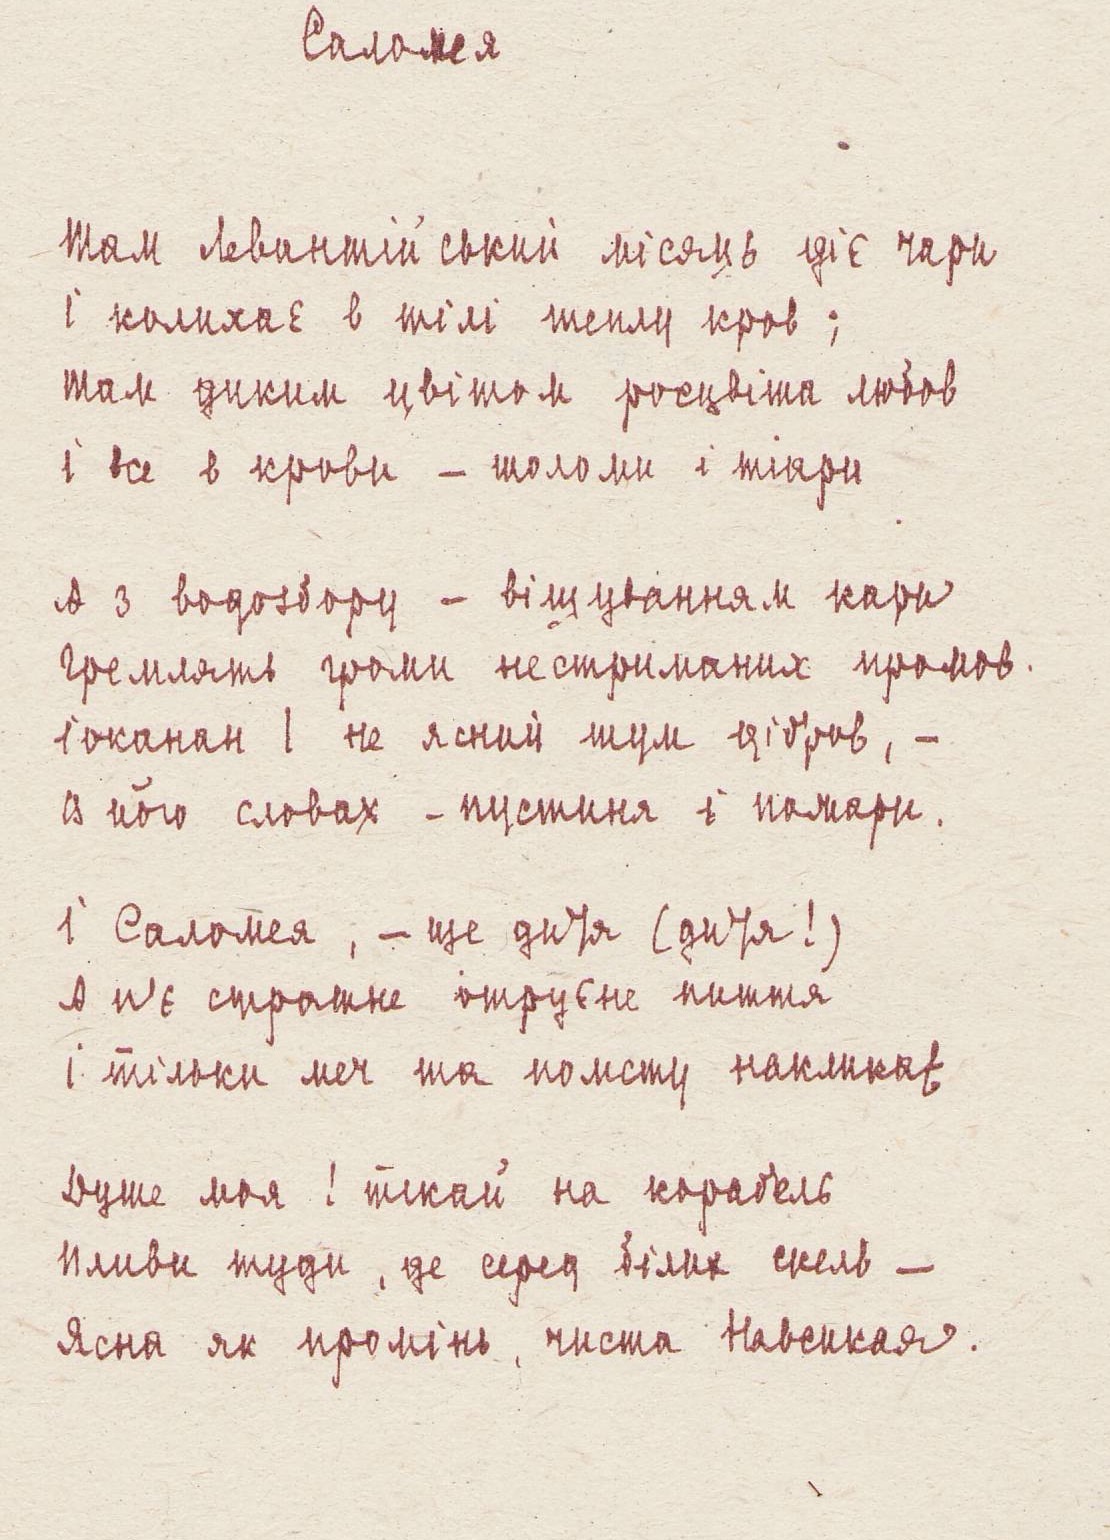 Саломея
Там левантійський місяць діє чари
І колихає в тілі теплу кров;
Там диким цвітом розцвіта любов
І все в крови – шоломи і тіари
А з водозбору – віщуванням кари
Гремлять громи нестриманих промов.
Іоканан! не ясний шум дібров, –
В його словах – пустиня і пожари.
І Саломея, – ще дитя (дитя!)
А п'є страшне отруєне пиття
І тільки меч та помсту накликає
Душе моя! тікай на корабель
Пливи туди, де серед білих скель –
Ясна як промінь, чиста Навсикая.